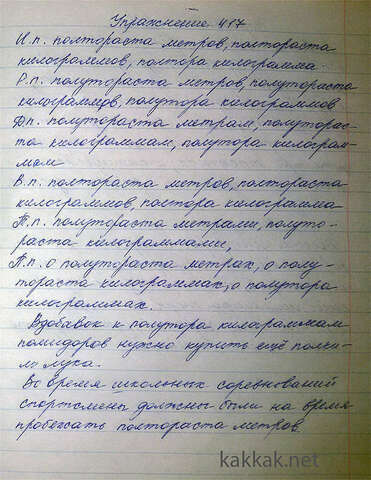 Упражнение 417
И.п. полтораста метров, полтораста
килограммов, полтора килограмма.
Р.п. полутораста метров, полутораста
килограммов, полутора килограммов
Д.п. полутораста метрам, полуторас-
та килограммам, полутора килограм-
мам
В.п. полтораста метров, полтораста
килограммов, полтора килограмма
Т.п. полутораста метрами, полуто-
раста килограммами,
П.п. о полутораста метрах, о полу-
тораста килограммах, о полутора
килограммах.
Вдобавок к полутора килограммам
помидоров нужно купить ещё полки-
ло лука.
Во время школьных соревнований
спортсмены должны были на время
пробежать полтораста метров
kakkak.net